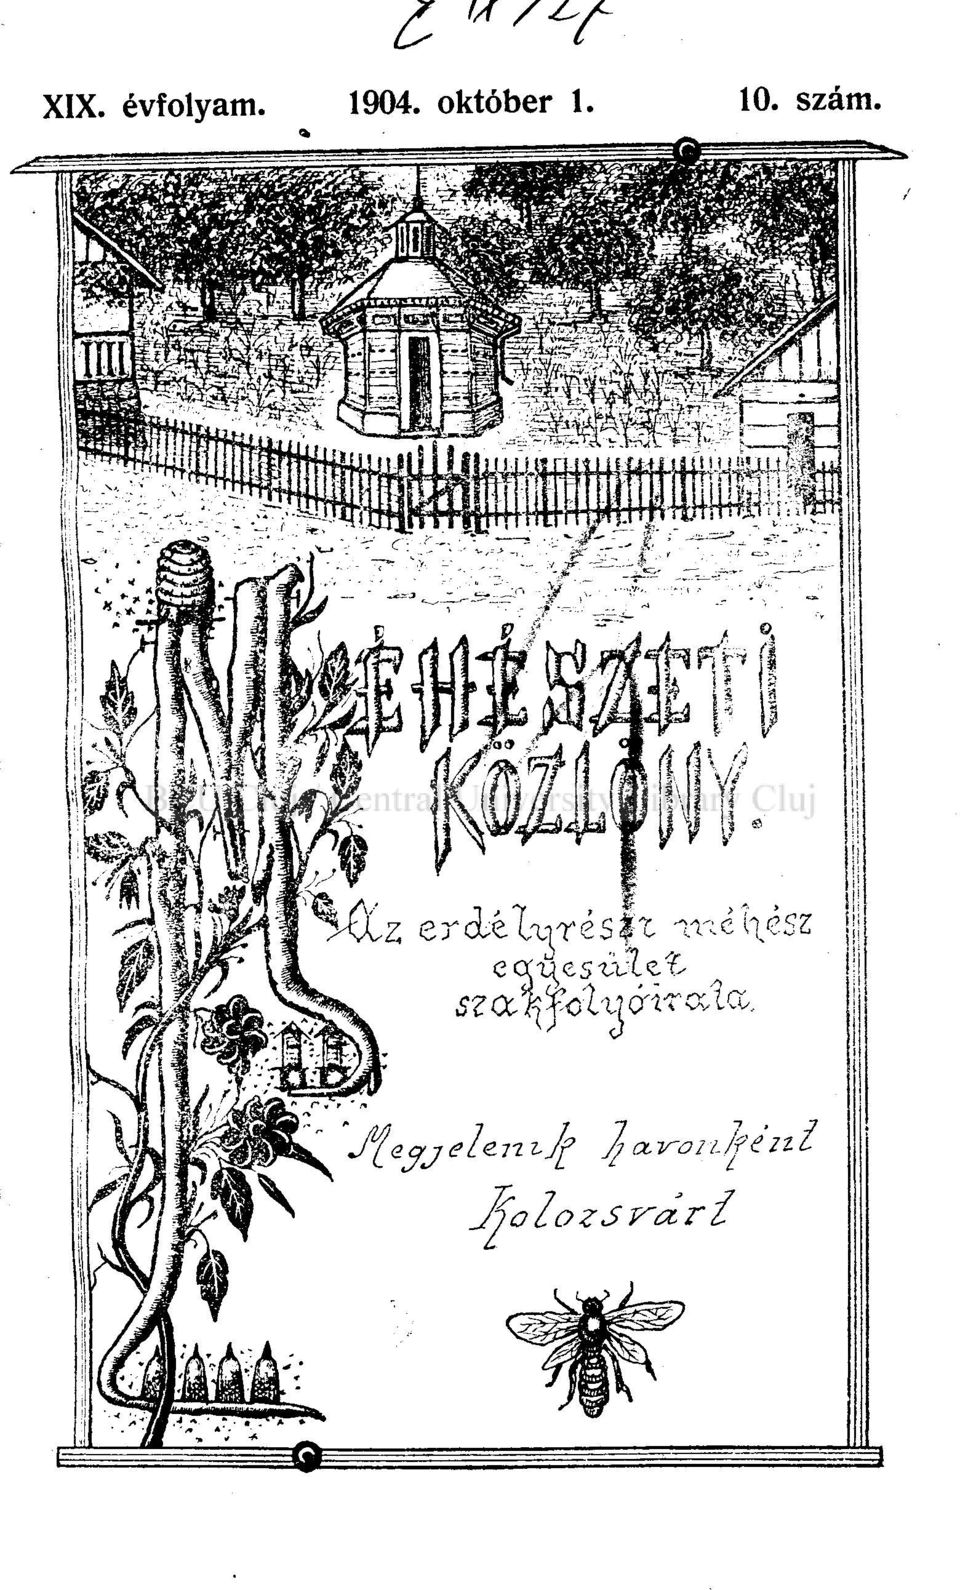 XIX. évfolyam. 1904. október 1. 10. szám.
MÉHÉSZETI
KÖZLÖNY.
BCU Cluj / Central University Library Cluj
Az erdélyrészi méhész
egyesület
szakfolyóirata.
Megjelenik havonként
Kolozsvárt